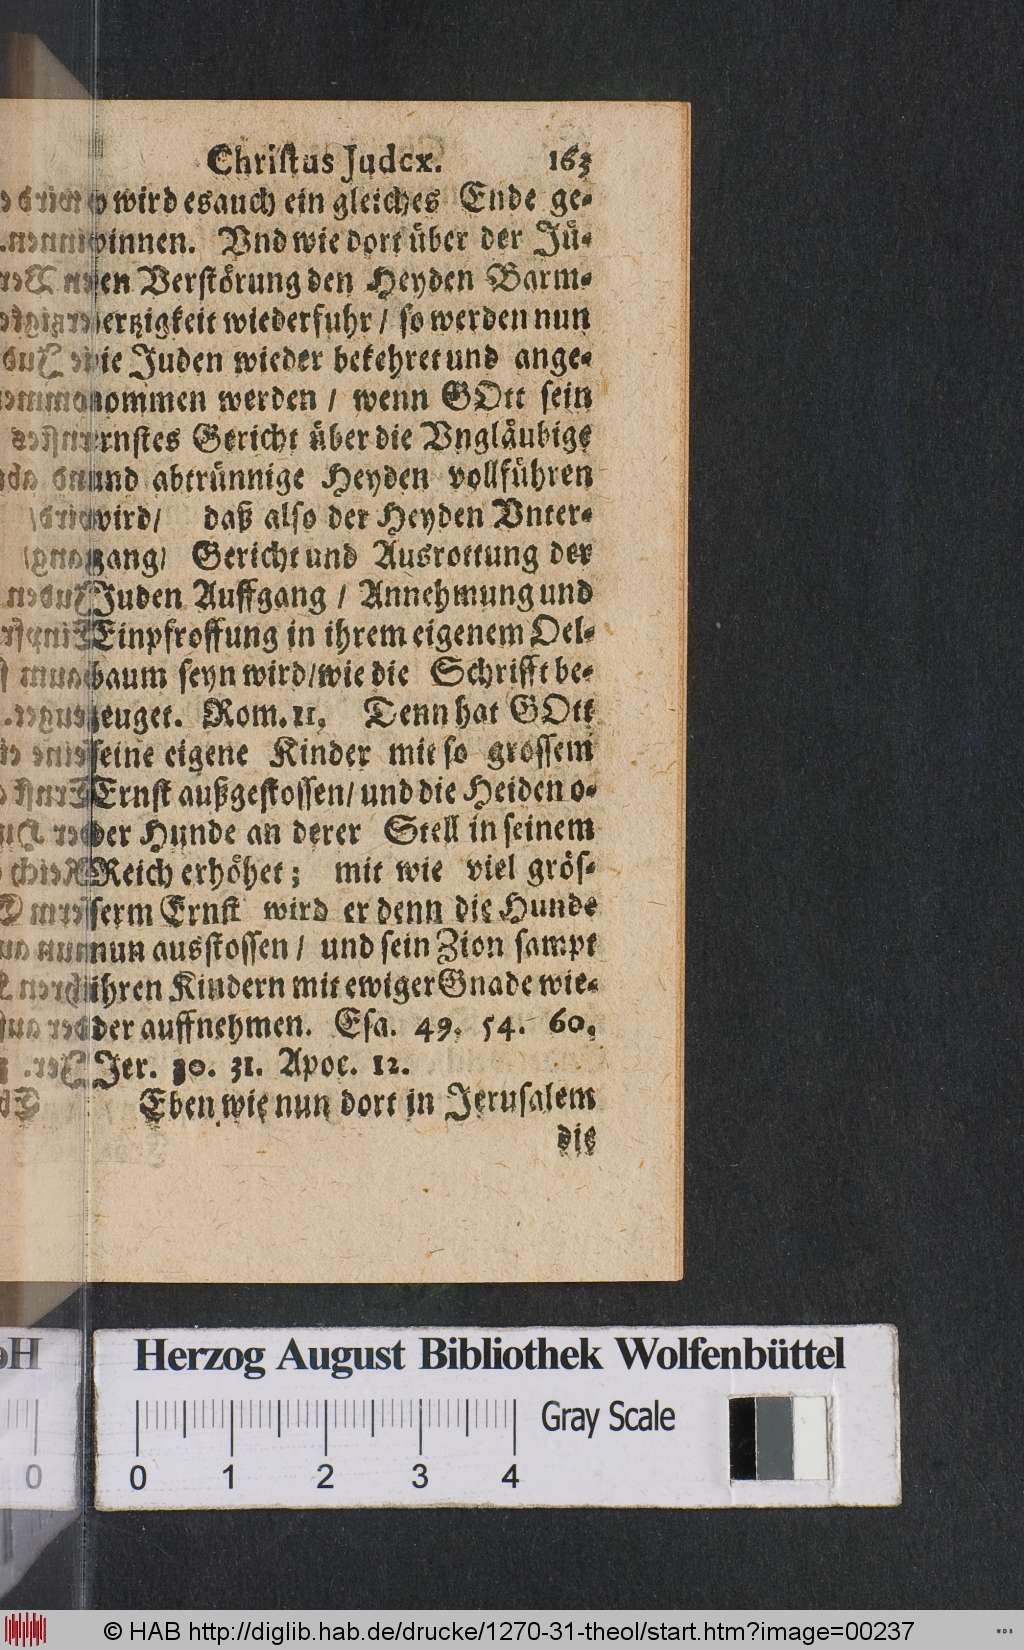 Christus Judex. 163
wird es auch ein gleiches Ende ge-
winnen. Vnd wie dort über der Jü-
den Verstörung den Heyden Barm-
hertzigkeit wiederfuhr / so werden nun
die Juden wieder bekehret und ange-
nommen werden / wenn GOtt sein
ernstes Gericht über die Vngläubige
und abtrünnige Heyden vollführen
wird / daß also der Heyden Vnter-
gang / Gericht und Ausrottung der
Juden Auffgang / Annehmung und
Einpfroffung in ihrem eigenem Oel-
baum seyn wird / wie die Schrifft be-
zeuget. Rom. 11. Denn hat GOtt
seine eigene Kinder mit so grossem
Ernst außgestossen / und die Heiden o-
der Hunde an derer Stell in seinem
Reich erhöhet; mit wie viel grös-
serm Ernst wird er denn die Hunde
nun ausstossen / und sein Zion sampt
ihren Kindern mit ewiger Gnade wie-
der auffnehmen. Esa. 49. 54. 60.
Jer. 30. 31. Apoc. 12.
Eben wie nun dort in Jerusalem
die
Herzog August Bibliothek Wolfenbüttel
Gray Scale
0 1 2 3 4
© HAB http://diglib.hab.de/drucke/1270-31-theol/start.htm?image=00237